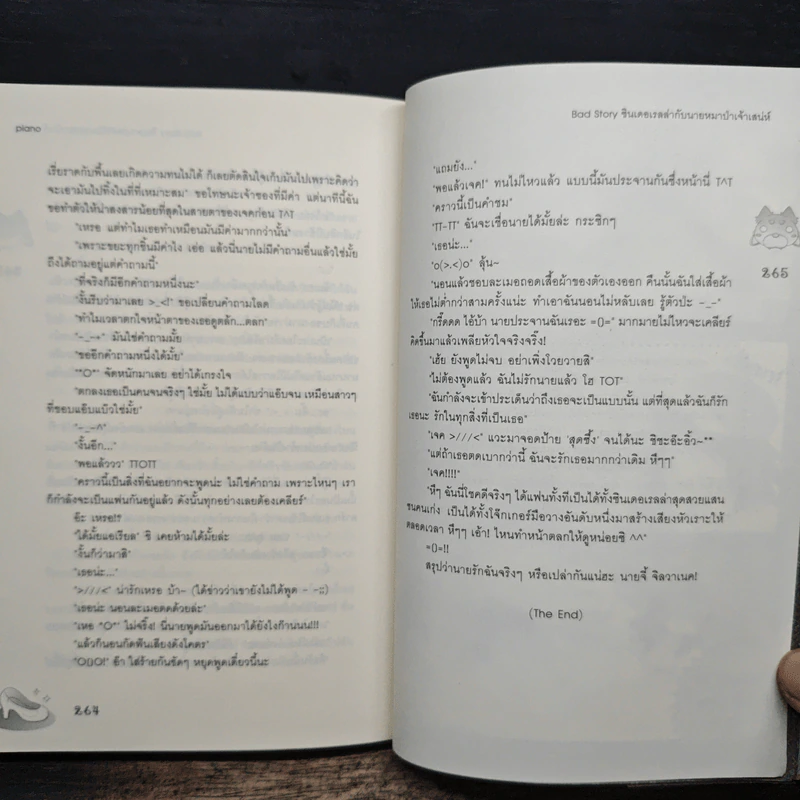 piano
เรี่ยราดกับพื้นเลยเกิดความทนไม่ได้ ก็เลยตัดสินใจเก็บมันไปเพราะคิดว่า
จะเอามันไปทิ้งในที่ที่เหมาะสม" ขอโทษนะเจ้าของที่มีค่า แต่นาทีนี้ฉัน
ขอทำตัวให้น่าสงสารน้อยที่สุดในสายตาของเจคก่อน T^T
"เหรอ แต่ทำไมเธอทำเหมือนมันมีค่ามากกว่านั้น"
"เพราะขยะทุกชิ้นมีค่าไง เอ่อ แล้วนี่นายไม่มีคำถามอื่นแล้วใช่มั้ย
ถึงได้ถามอยู่แต่คำถามนี้"
"ที่จริงก็มีอีกคำถามหนึ่งนะ"
"งั้นรีบว่ามาเลย >_<!" ขอเปลี่ยนคำถามโลด
"ทำไมเวลาตกใจหน้าตาของเธอดูตลัก...ตลก"
"-_-*" มันใช่คำถามมั้ย
"ขออีกคำถามหนึ่งได้มั้ย"
"*O*" จัดหนักมาเลย อย่าได้เกรงใจ
"ตกลงเธอเป็นคนจนจริงๆ ใช่มั้ย ไม่ได้แบบว่าแอ๊บจน เหมือนสาวๆ
ที่ชอบแอ๊บแบ๊วใช่มั้ย"
"-_-^"
"งั้นอีก..."
"พอแล้ววว" TTOTT
"คราวนี้เป็นสิ่งที่ฉันอยากจะพูดน่ะ ไม่ใช่คำถาม เพราะไหนๆ เรา
ก็กำลังจะเป็นแฟนกันอยู่แล้ว ดังนั้นทุกอย่างเลยต้องเคลียร์"
อ๊ะ เหรอ!?
"ได้มั้ยแอเรียล" ชิ เคยห้ามได้มั้ยล่ะ
"งั้นก็ว่ามาสิ"
"เธอน่ะ..."
">///<" น่ารักเหรอ บ้า~ (ได้ข่าวว่าเขายังไม่ได้พูด - -;;)
"เธอน่ะ นอนละเมอตดด้วยล่ะ"
"เหอ *O*" ไม่จริ๊ง! นี่นายพูดมันออกมาได้ยังไงก๊านนน!!!
"แล้วก็นอนกัดฟันเสียงดังโคตร"
"ODO!" อ๊า ใส่ร้ายกันชัดๆ หยุดพูดเดี๋ยวนี้นะ
264
Bad Story ซินเดอเรลล่ากับนายหมาป่าเจ้าเสน่ห์
"แถมยัง..."
"พอแล้วเจค!" ทนไม่ไหวแล้ว แบบนี้มันประจานกันซึ่งหน้านี่ T^T
"คราวนี้เป็นคำชม"
"TT-TT" ฉันจะเชื่อนายได้มั้ยล่ะ กระซิกๆ
"เธอน่ะ..."
"o(>.<)o" ลุ้น~
"นอนแล้วชอบละเมอถอดเสื้อผ้าของตัวเองออก คืนนั้นฉันใส่เสื้อผ้า
ให้เธอไม่ต่ำกว่าสามครั้งแน่ะ ทำเอาฉันนอนไม่หลับเลย รู้ตัวป่ะ -_-"
"กรี๊ดดด ไอ้บ้า นายประจานฉันเรอะ =[]=" มากมายไม่ไหวจะเคลียร์
คิดขึ้นมาแล้วเพลียหัวใจจริงจริ๊ง!
"เฮ้ย ยังพูดไม่จบ อย่าเพิ่งโวยวายสิ"
"ไม่ต้องพูดแล้ว ฉันไม่รักนายแล้ว โฮ TOT"
"ฉันกำลังจะเข้าประเด็นว่าถึงเธอจะเป็นแบบนั้น แต่ที่สุดแล้วฉันก็รัก
เธอนะ รักในทุกสิ่งที่เป็นเธอ"
"เจค >///<" แวะมาจอดป้าย 'สุดซึ้ง' จนได้นะ ชิชะอ๊ะอิ๊ว~**
"แต่ถ้าเธอตดเบากว่านี้ ฉันจะรักเธอมากกว่าเดิม หึๆๆ"
"เจค!!!!"
"หึๆ ฉันนี่โชคดีจริงๆ ได้แฟนทั้งทีเป็นได้ทั้งซินเดอเรลล่าสุดสวยแสน
ซนคนเก่ง เป็นได้ทั้งโจ๊กเกอร์มือวางอันดับหนึ่งมาสร้างเสียงหัวเราะให้
ตลอดเวลา หึๆๆ เอ้า! ไหนทำหน้าตลกให้ดูหน่อยซิ ^^"
=[]=!!
สรุปว่านายรักฉันจริงๆ หรือเปล่ากันแน่ฮะ นายจี้ จิลวาเนค!
(The End)
265